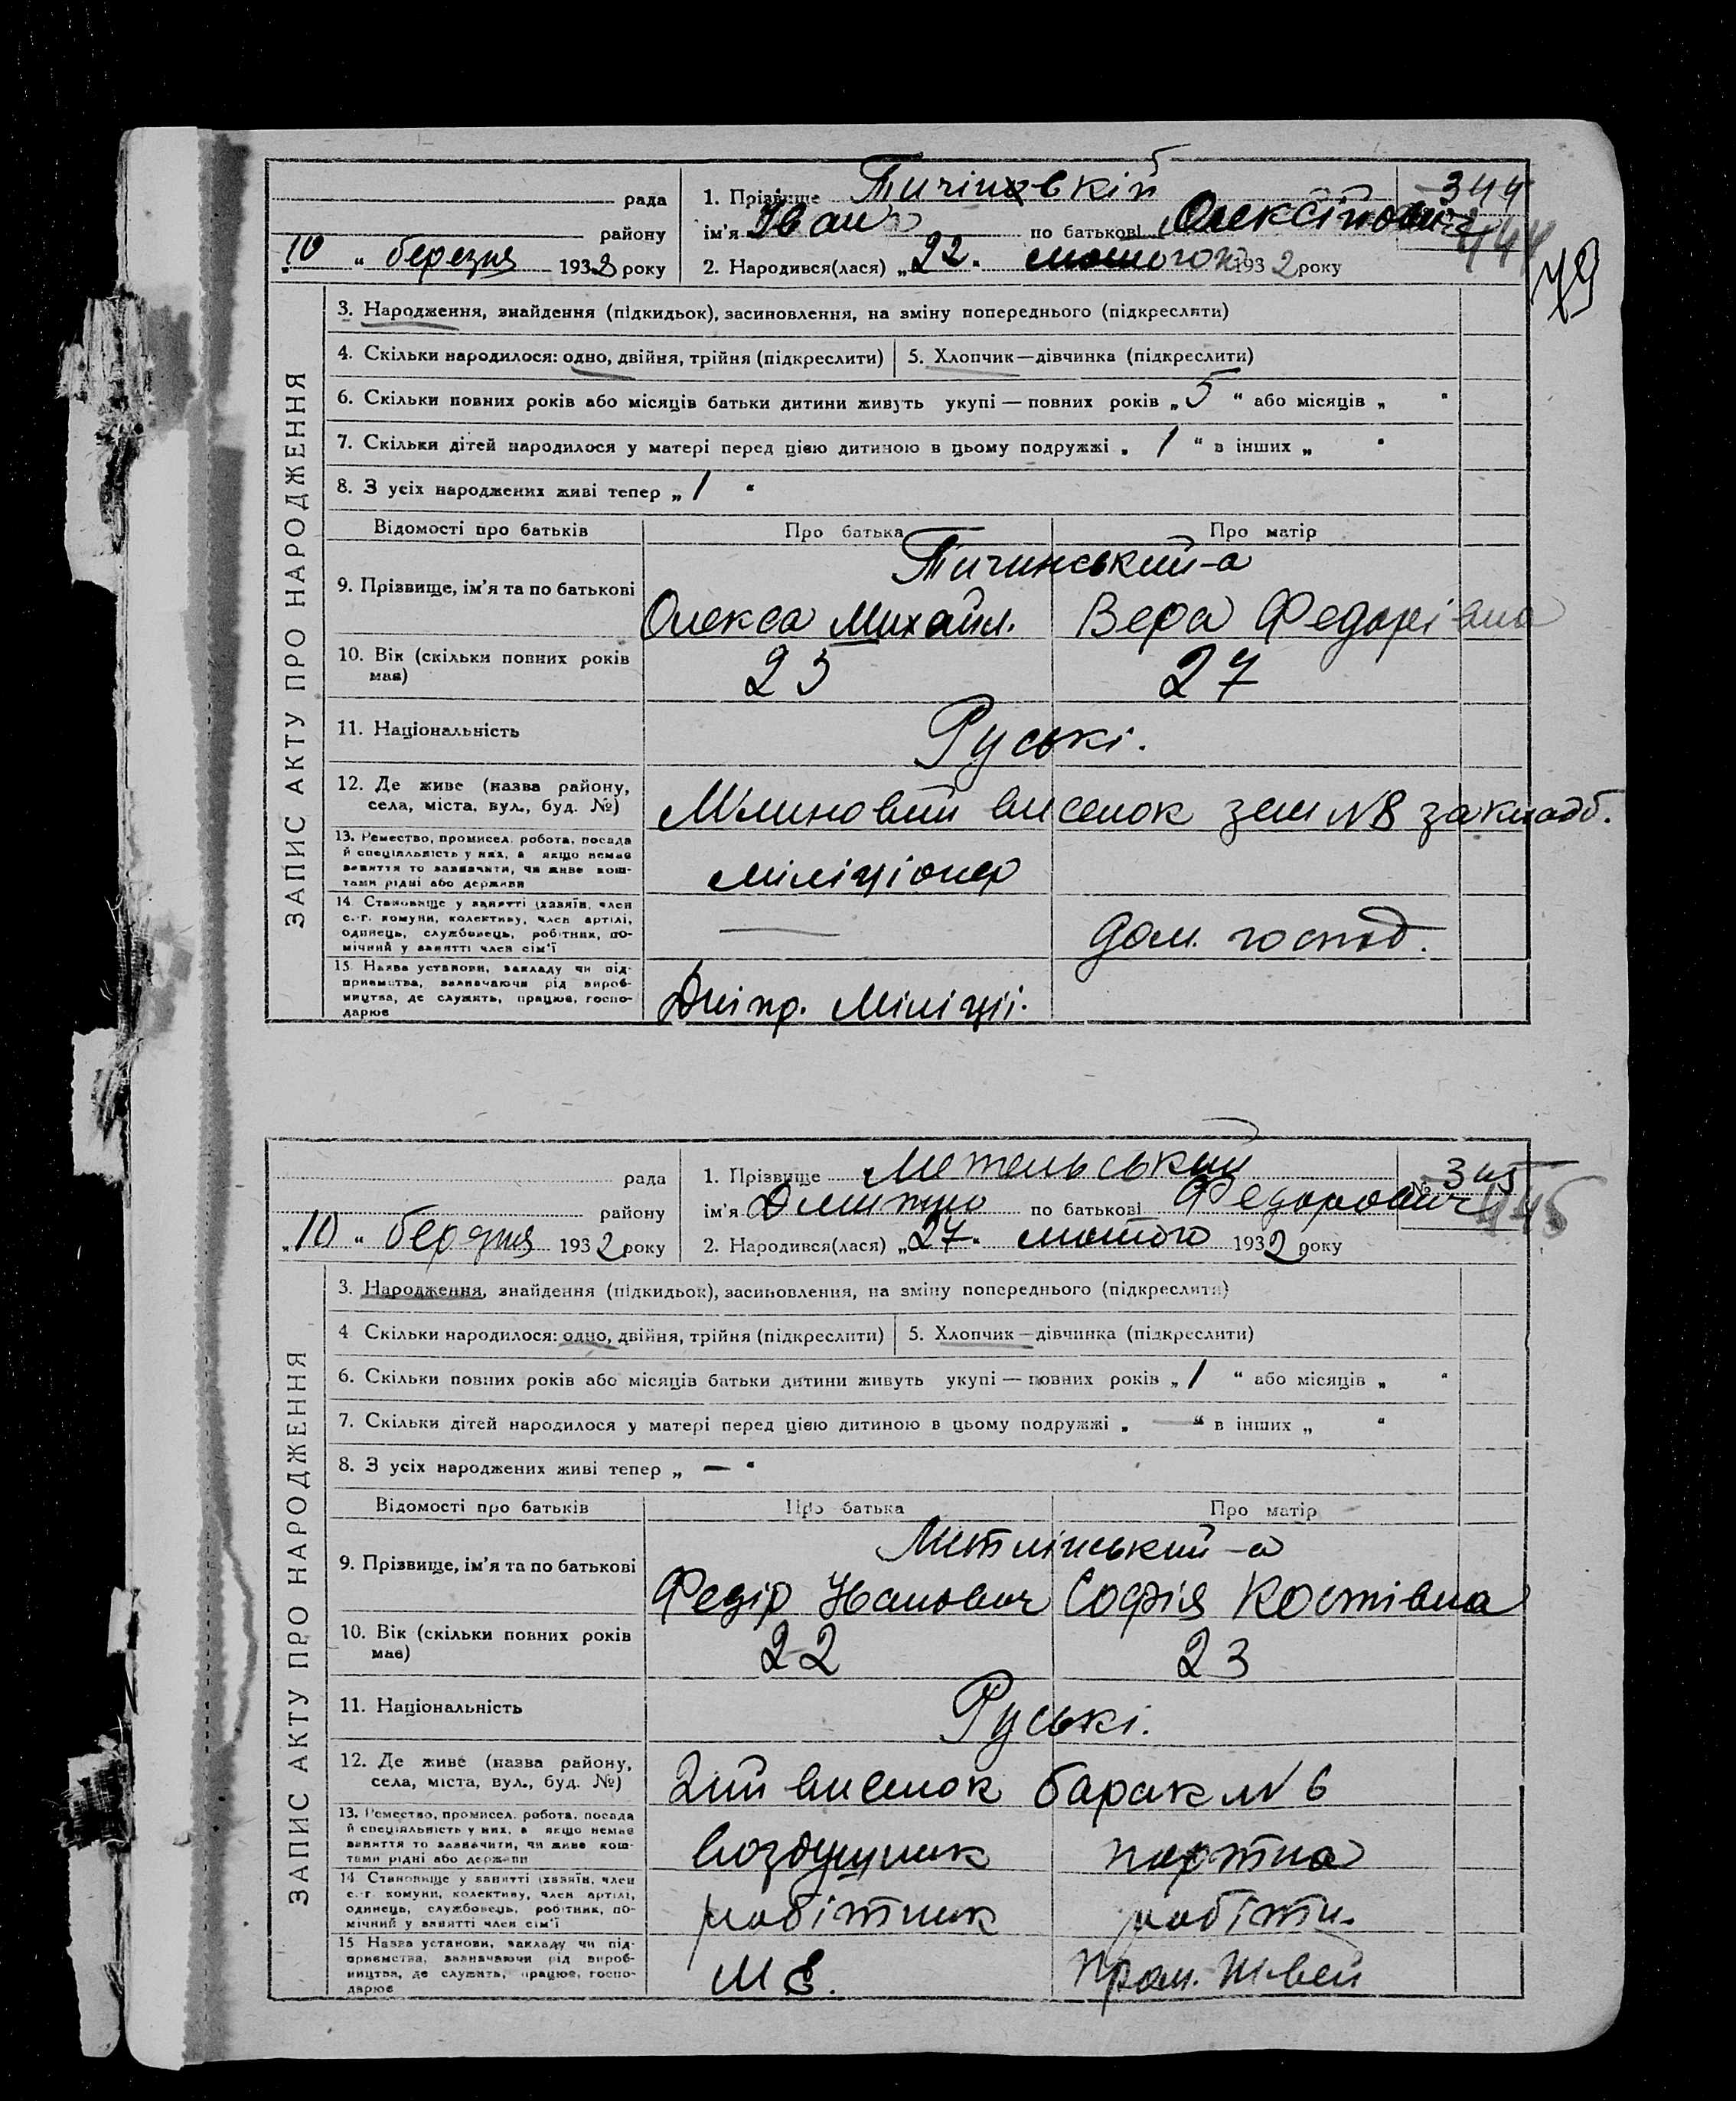 рада
району
„10 “ березня 1932 року
1. Прізвище Тичінскій
ім'я Іван по батькові Олексійович
2. Народився(лася) „22. лютого 1932 року
344
444
79
ЗАПИС АКТУ ПРО НАРОДЖЕННЯ
3. Народження, знайдення (підкидьок), засиновлення, на зміну попереднього (підкреслити)
4. Скільки народилося: одно, двійня, трійня (підкреслити) 5. Хлопчик—дівчинка (підкреслити)
6. Скільки повних років або місяців батьки дитини живуть укупі — повних років „ 5 “ або місяців „ “
7. Скільки дітей народилося у матері перед цією дитиною в цьому подружжі „ 1 “ в інших „ “
8. З усіх народжених живі тепер „ 1 “
Відомості про батьків Про батька Про матір
9. Прізвище, ім'я та по батькові
Тичинський-а
Олекса Михайл. Вера Федорівна
10. Вік (скільки повних років має) 25 27
11. Національність Руські.
12. Де живе (назва району, села, міста, вул., буд. №)
Млиновий виселок зем №8
13. Ремество, промисел. робота, посада й спеціяльність у них, а якщо немає заняття то зазначити, чи живе коштами рідні або держави
міліціонер
14. Становище у занятті (хазяїн, член с.-г. комуни, колективу, член артілі, одинець, службовець, робітник, помічний у занятті член сім'ї
— дом. господ.
15. Назва установи, закладу чи підприємства, зазначаючи рід виробництва, де служить, працює, господарює
Дніпр. Міліції.
рада
району
„10 “ березня 1932 року
1. Прізвище Метельський
ім'я Дмитро по батькові Федорович
2. Народився(лася) „27. лютого 1932 року
№ 345
445
ЗАПИС АКТУ ПРО НАРОДЖЕННЯ
3. Народження, знайдення (підкидьок), засиновлення, на зміну попереднього (підкреслити)
4 Скільки народилося: одно, двійня, трійня (підкреслити) 5. Хлопчик—дівчинка (підкреслити)
6. Скільки повних років або місяців батьки дитини живуть укупі — повних років „ 1 “ або місяців „ “
7. Скільки дітей народилося у матері перед цією дитиною в цьому подружжі „ — “ в інших „ “
8. З усіх народжених живі тепер „ — “
Відомості про батьків Про батька Про матір
9. Прізвище, ім'я та по батькові
Митлінський-а
Федір Іванович Софія Костівна
10. Вік (скільки повних років має) 22 23
11. Національність Руські.
12. Де живе (назва району, села, міста, вул., буд. №)
2ий виселок барак №6
13. Ремество, промисел. робота, посада й спеціяльність у них, а якщо немає заняття то зазначити, чи живе коштами рідні або держави
воздушник портна
14 Становище у занятті (хазяїн, член с.-г. комуни, колективу, член артілі, одинець, службовець, робітник, помічний у занятті член сім'ї
робітник робітн.
15 Назва установи, закладу чи підприємства, зазначаючи рід виробництва, де служить, працює, господарює
Пром. Швей